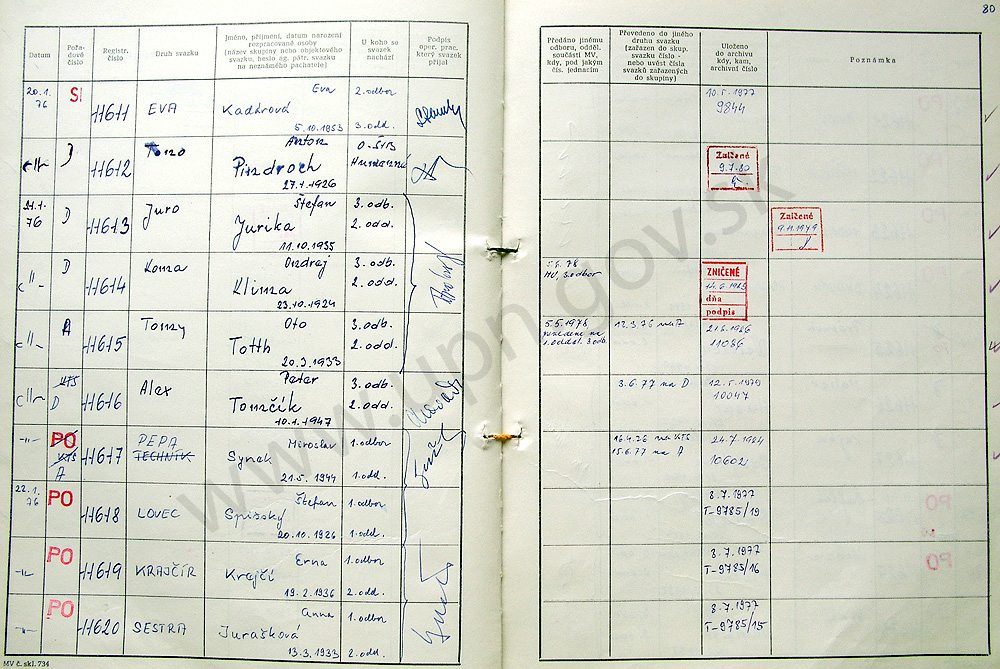 80
Datum
Pořadové číslo
Registr. číslo
Druh svazku
Jméno, příjmení, datum narození rozpracované osoby (název skupiny nebo objektového svazku, heslo ag. pátr. svazku na neznámého pachatele)
U koho se svazek nachází
Podpis oper. prac. který svazek přijal
Předáno jinému odboru, odděl. součásti MV, kdy, pod jakým čís. jednacím
Převedeno do jiného druhu svazku (zařazen do skup. svazku číslo - nebo uvést čísla svazků zařazených do skupiny)
Uloženo do archivu kdy, kam, archivní číslo
Poznámka
20.1. 76 SI 11611 EVA Eva Kadárová 5.10.1953 2.odbor 3.odd. 10.5.1977 9844
-"- D 11612 Tono Anton Pindroch 27.1.1926 O-ŠtB Humenné Zničené 9.7.80
21.1. 76 D 11613 Juro Štefan Jurika 11.10.1935 3.odb. 2.odd. Zničené 9.11.1979
-"- D 11614 Ondrej Klima 23.10.1924 3.odb. 2.odd. MV, 3.odbor ZNIČENÉ dňa podpis
-"- A 11615 Tonzy Oto Totth 20.3.1933 3.odb. 2.odd. 5.5.1976 1.odd. 3.odb. 12.3.76 na A 11086
-"- KTS D 11616 Alex Peter Tomčík 10.1.1947 3.odb. 2.odd. 3.6.77 na D 12.5.1979 10047
-"- PO KTS A 11617 PEPA TECHNIK Miroslav Synek 21.5.1944 1.odbor 1.odd. 16.4.76 na KTS 15.6.77 na A 24.7.1984 10602
22.1. 76 PO 11618 LOVEC Štefan Spišský 20.10.1926 1.odbor 1.odd. 8.7.1977 T-9785/19
-"- PO 11619 KRAJČÍR Erna Krajčí 19.2.1936 1.odbor 2.odd. 8.7.1977 T-9785/16
-"- PO 11620 SESTRA Anna Jurašková 13.3.1933 1.odbor 2.odd. 8.7.1977 T-9785/15
MV č. skl. 734
www.upn.gov.sk